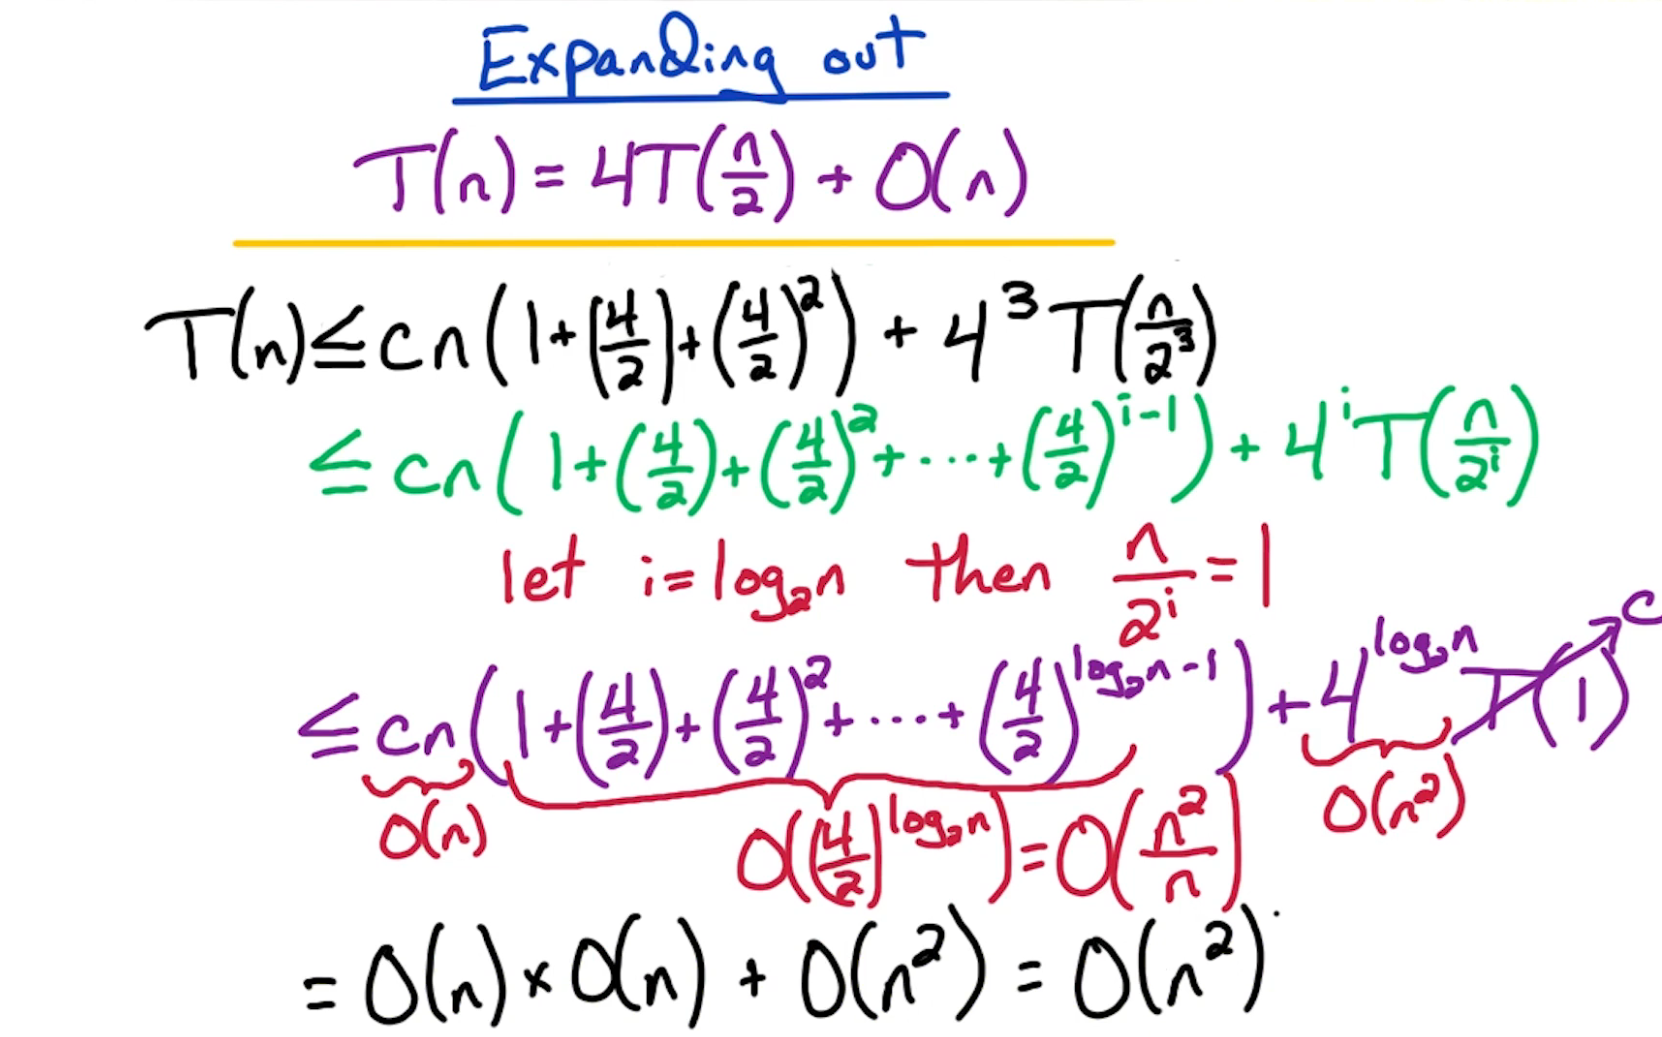 Expanding out
T(n) = 4T(n/2) + O(n)
T(n) ≤ cn(1+(4/2)+(4/2)²) + 4³T(n/2³)
≤ cn(1+(4/2)+(4/2)²+···+(4/2)^(i-1)) + 4^i T(n/2^i)
let i=log₂n then n/2^i = 1
≤ cn(1+(4/2)+(4/2)²+···+(4/2)^(log₂n-1)) + 4^(log₂n) T(1) → c
O(n) O((4/2)^(log₂n)) = O(n²/n) O(n²)
= O(n) × O(n) + O(n²) = O(n²)